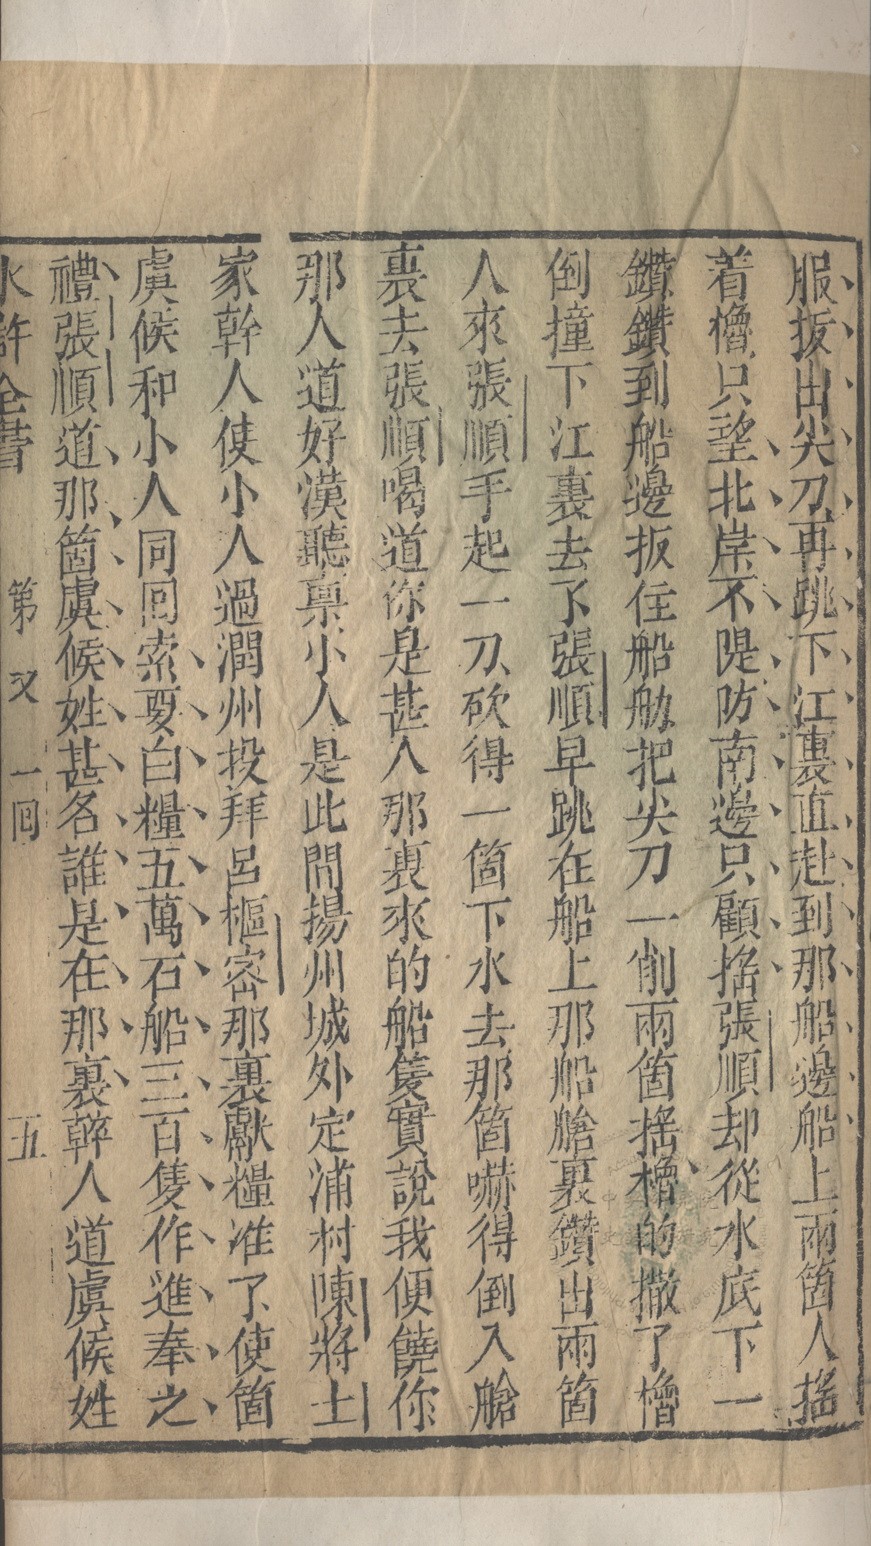 服扳出尖刀再跳下江裏直赴到那船邊船上兩箇人搖
着櫓只望北岸不隄防南邊只顧搖張順却從水底下一
鑽鑽到船邊扳住船舫把尖刀一削兩箇搖櫓的撒了櫓
倒撞下江裏去了張順早跳在船上那船艙裏鑽出兩箇
人來張順手起一刀砍得一箇下水去那箇嚇得倒入艙
裏去張順喝道你是甚人那裏來的船隻實說我便饒你
那人道好漢聽禀小人是此間揚州城外定浦村陳將士
家幹人使小人過潤州投拜呂樞密那裏獻糧准了使箇
虞候和小人同回索要白糧五萬石船三百隻作進奉之
禮張順道那箇虞候姓甚名誰是在那裏幹人道虞候姓
水滸全書 第 一回 五